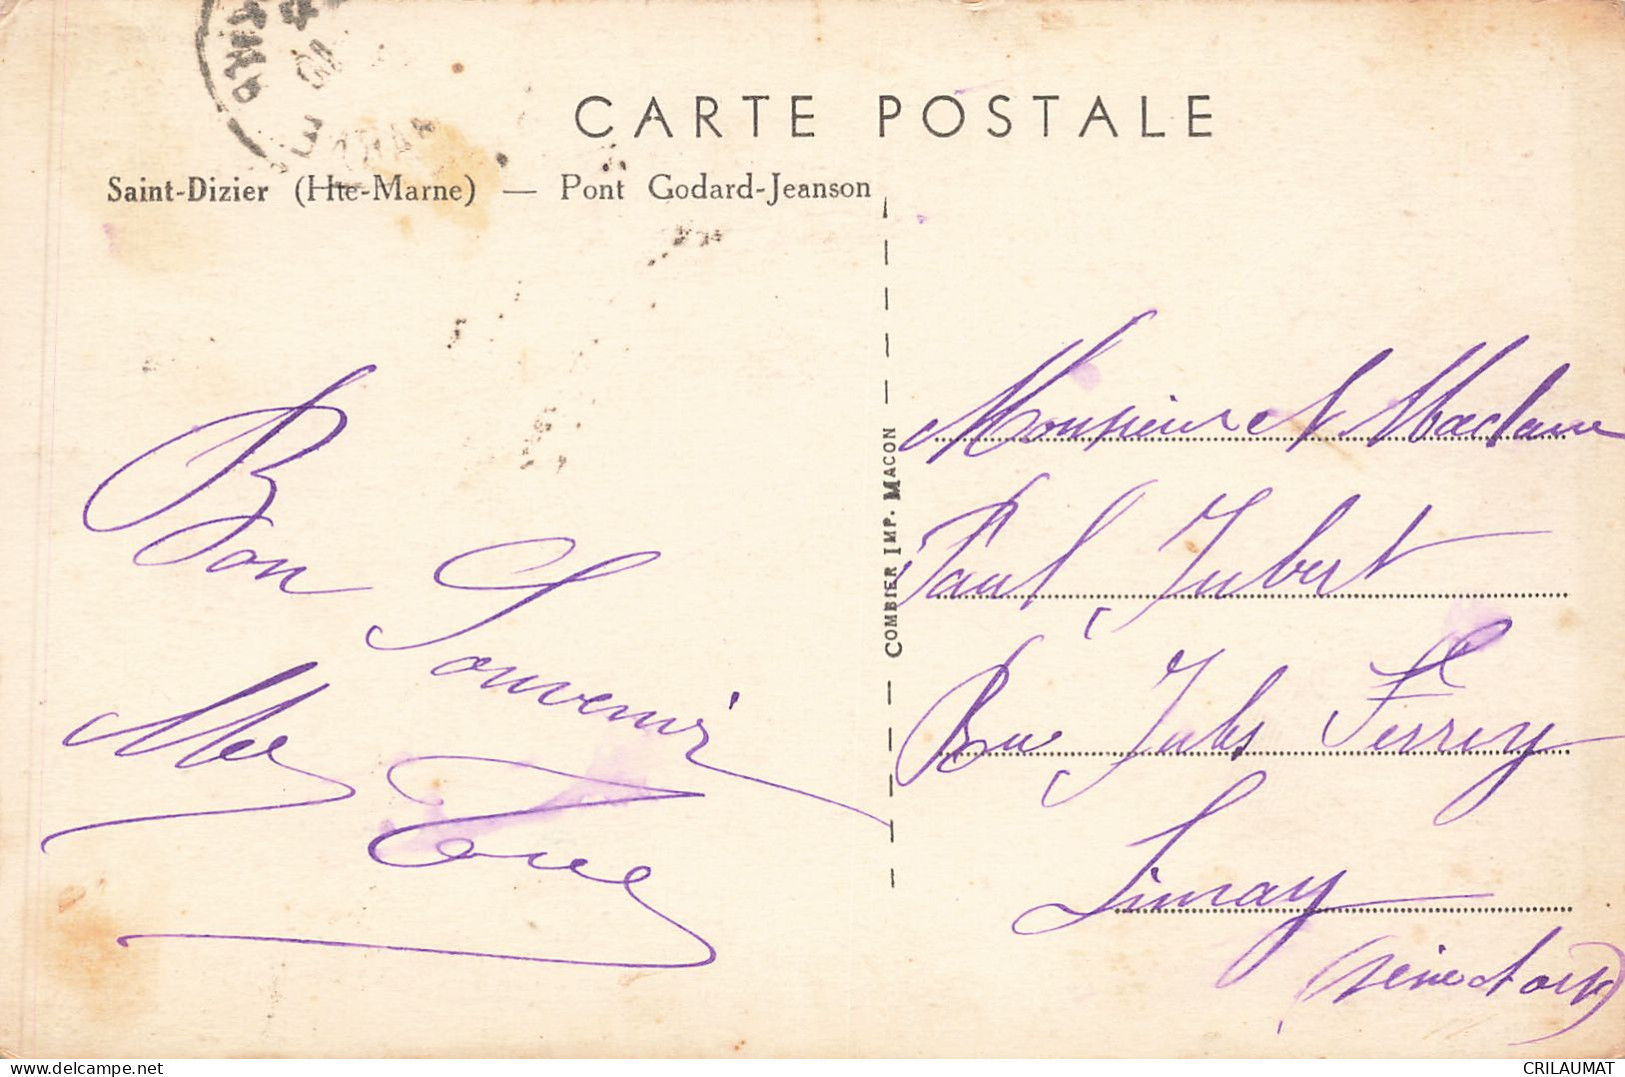 CARTE POSTALE
Saint-Dizier (Hte-Marne) — Pont Godard-Jeanson
COMBIER IMP. MACON
Bon
Souvenir
Monsieur et Madame
Paul Jubert
Rue Jules Ferrey
Limay
(Seine et Oise)
delcampe.net
CRILAUMAT